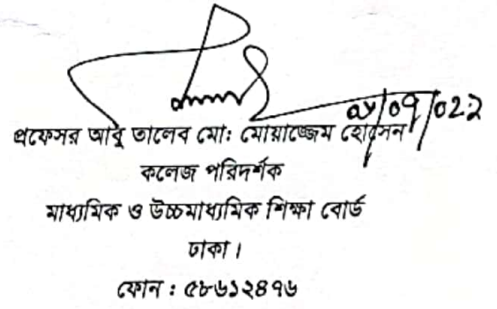 প্রফেসর আবু তালেব মো: মোয়াজ্জেম হোসেন
কলেজ পরিদর্শক
মাধ্যমিক ও উচ্চমাধ্যমিক শিক্ষা বোর্ড
ঢাকা।
ফোন : ৫৮৬১২৪৭৬